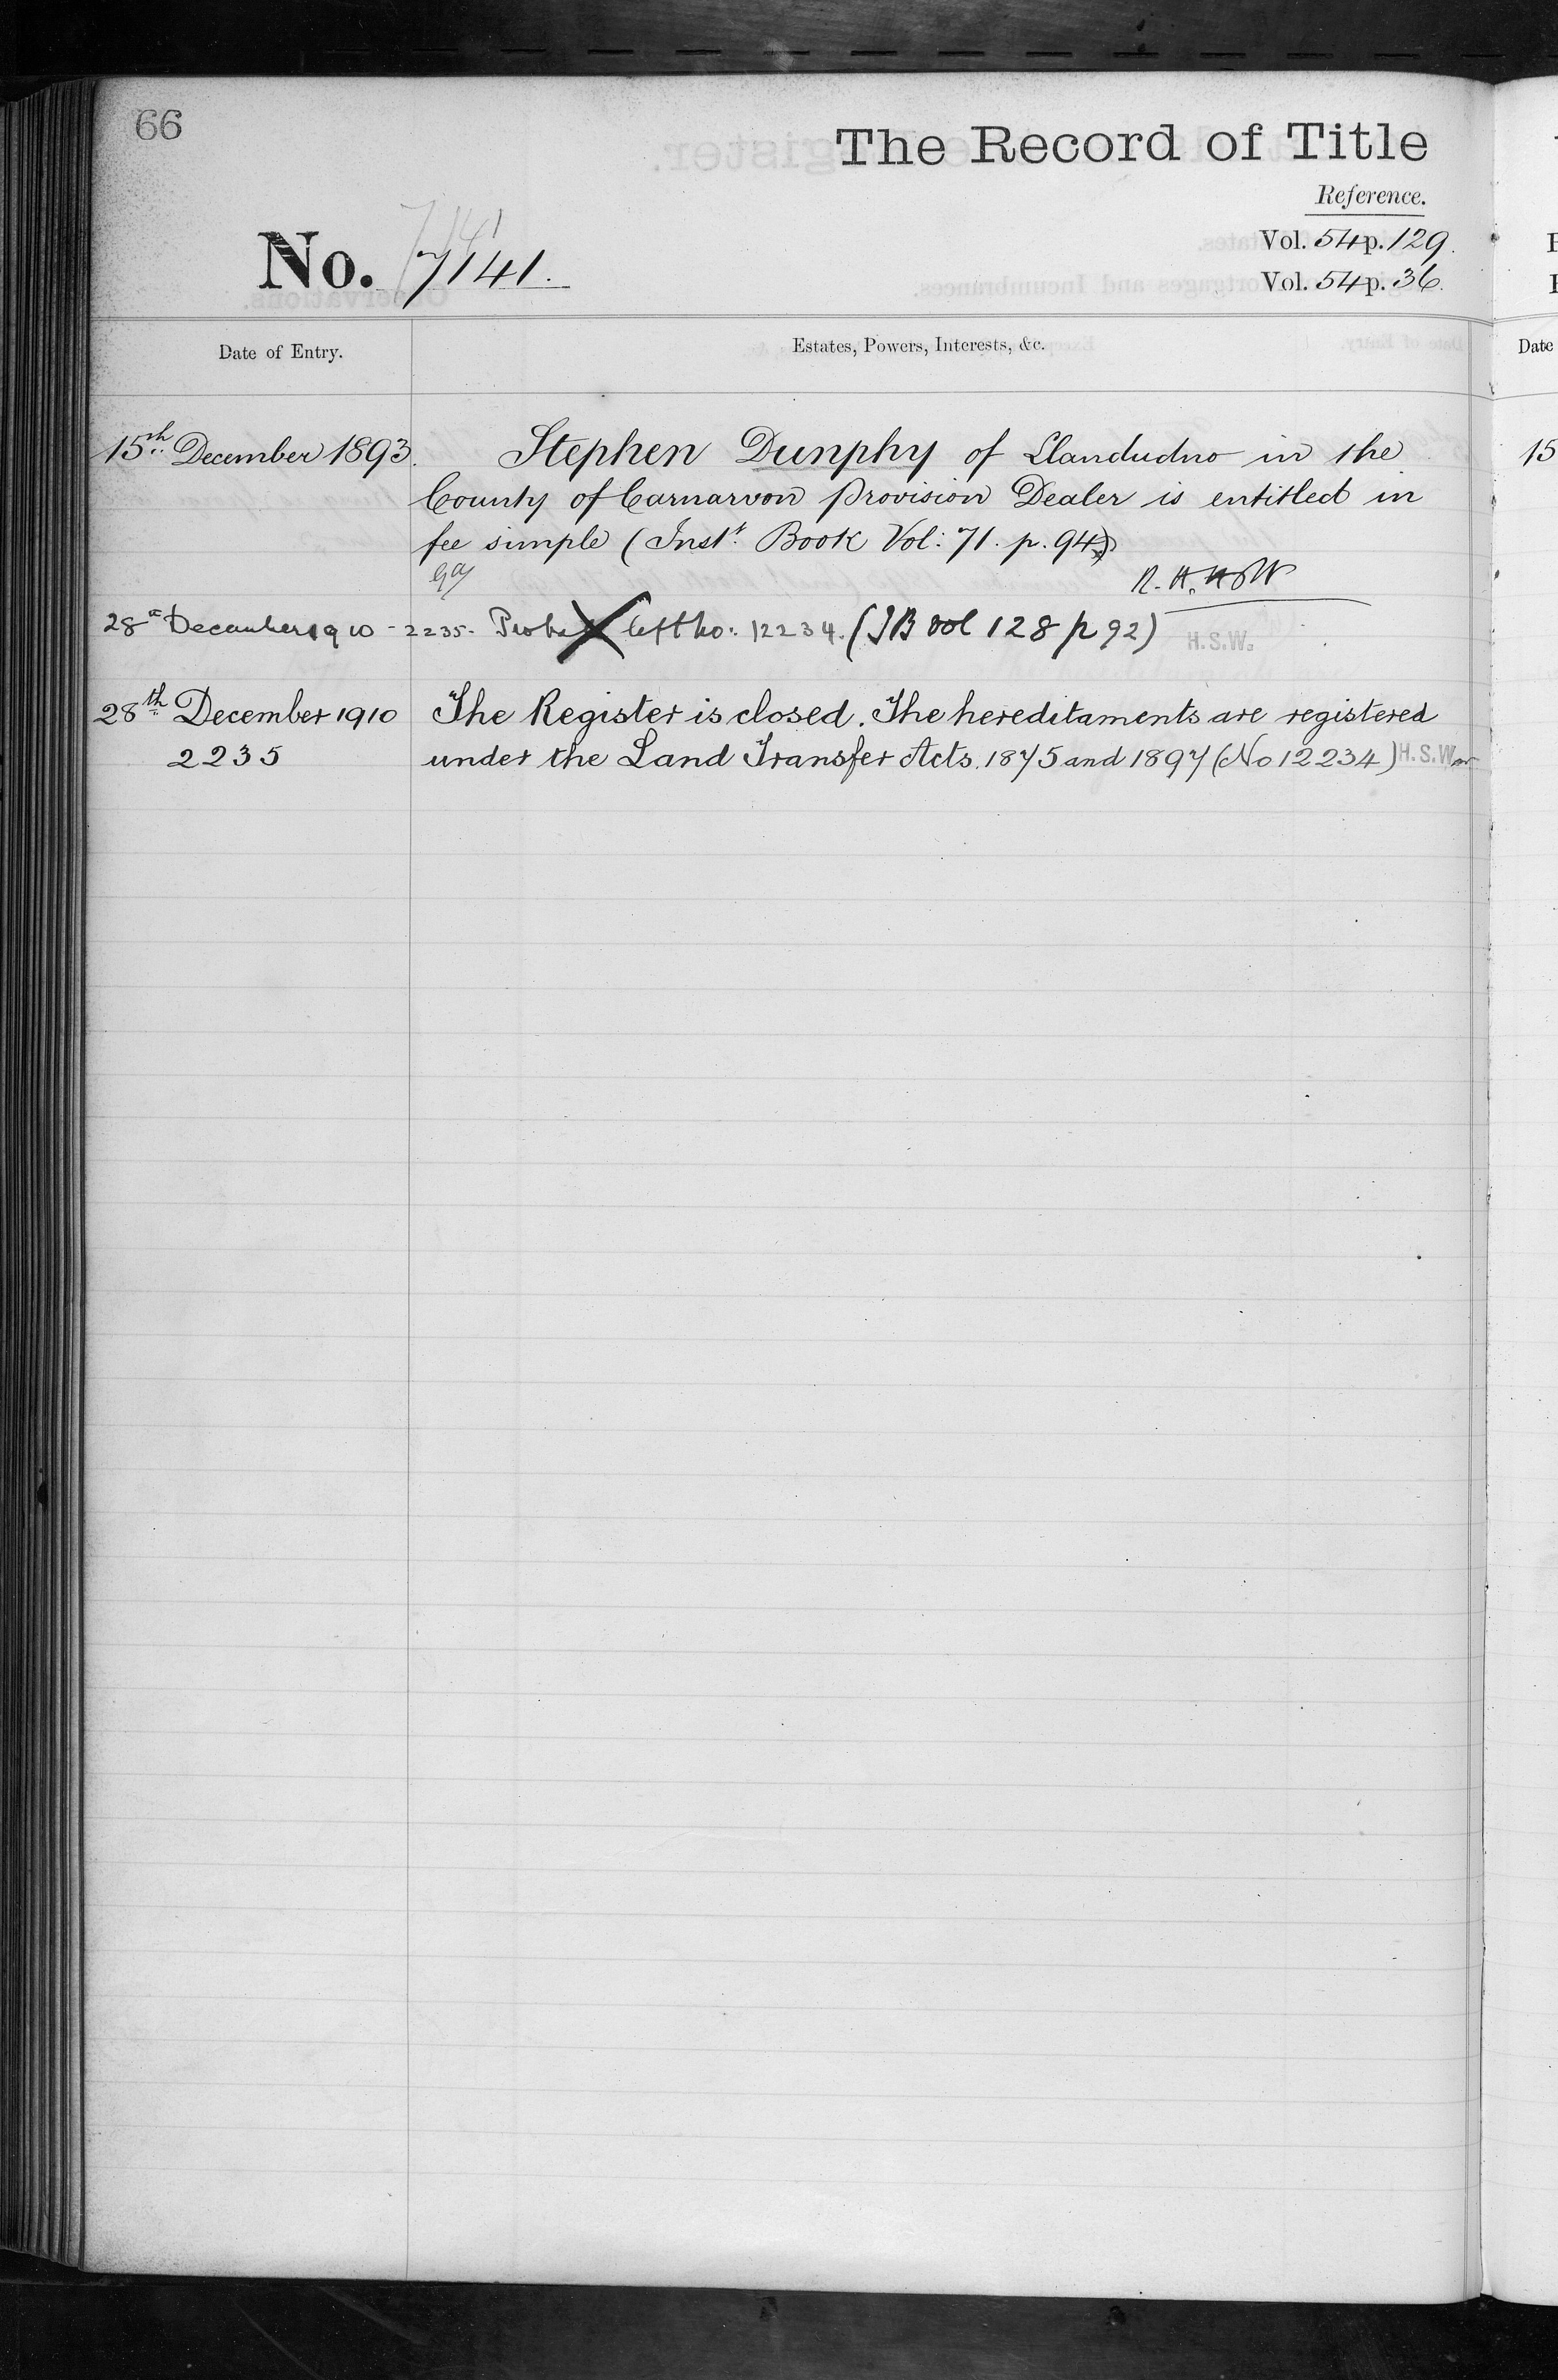 66
The Record of Title
Reference.
No. 7141.
7141
Vol. 54 p. 129.
Vol. 54 p. 36.
Date of Entry.
Estates, Powers, Interests, &c.
Date
15th December 1893.
Stephen Dunphy of Llandudno in the
County of Carnarvon Provision Dealer is entitled in
fee simple (Inst. Book Vol: 71. p. 94)
15
28th December 1910 - 2235. left No: 12234. (IB vol 128 p 92) H.S.W.
28th December 1910 The Register is closed. The hereditaments are registered
2235 under the Land Transfer Acts. 1875 and 1897 (No 12234) H.S.W.